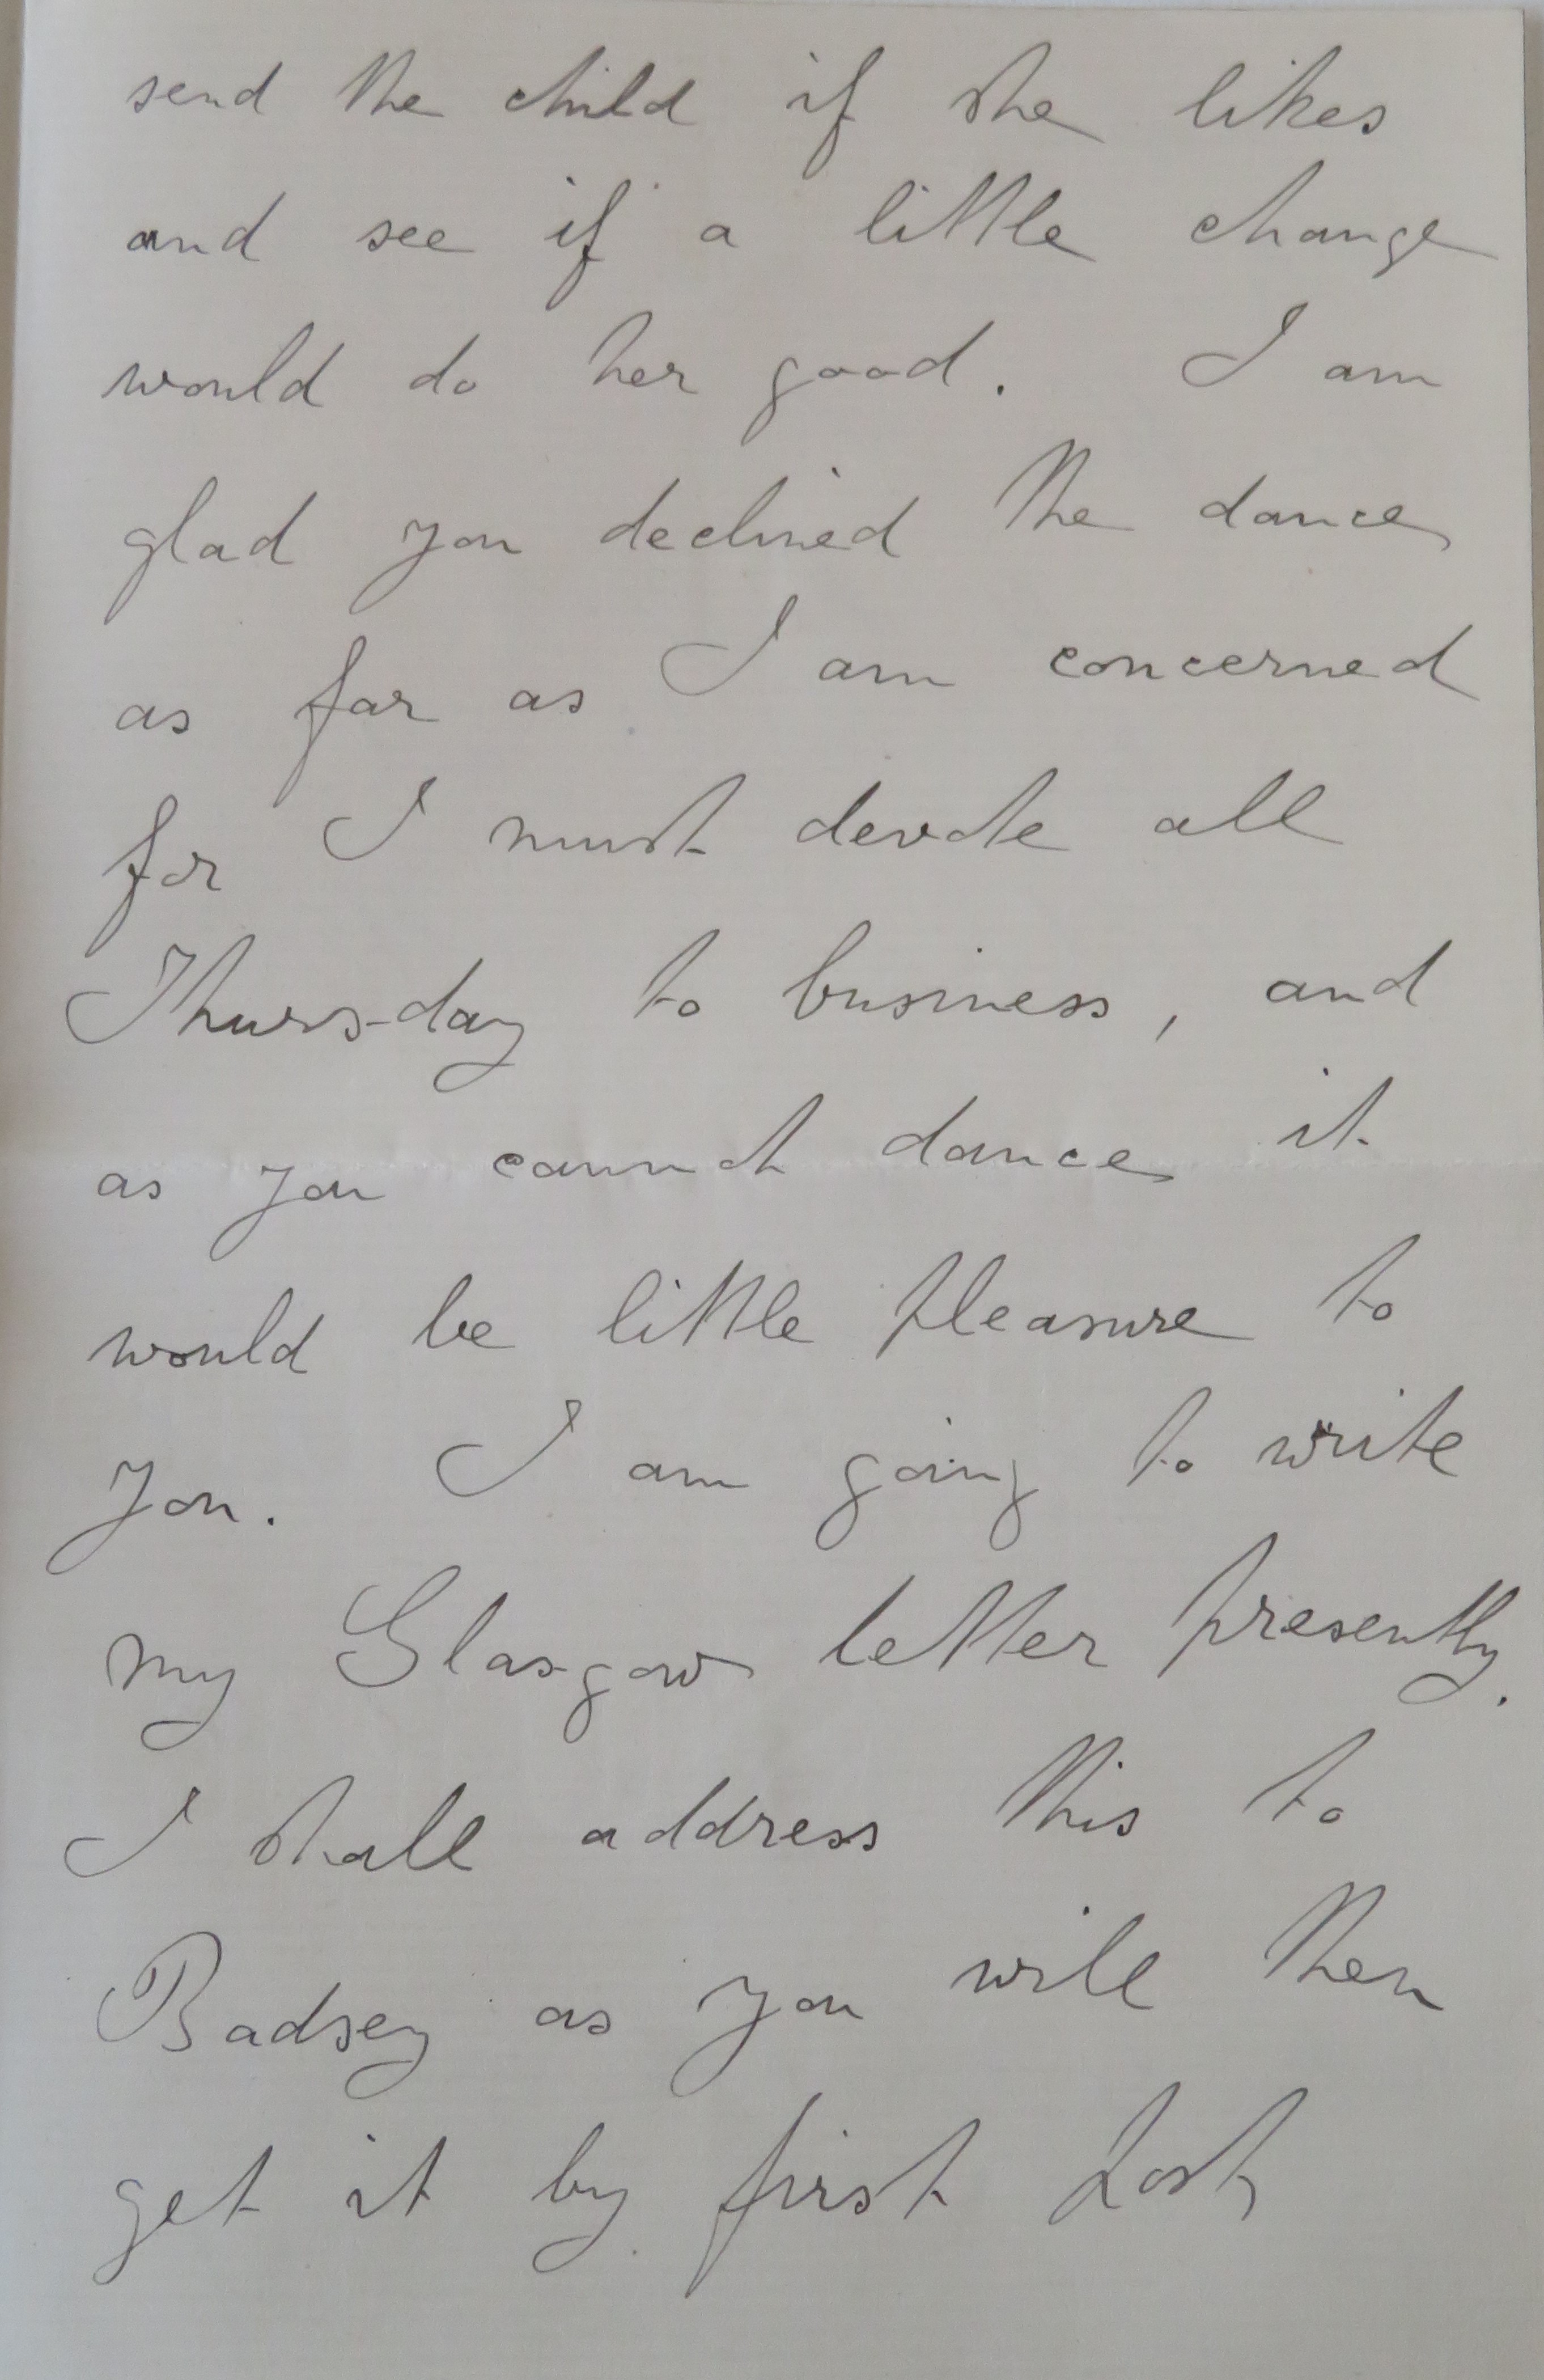 send the child if she likes
and see if a little change
would do her good. I am
glad you declined the dance
as far as I am concerned
for I must devote all
Thursday to business, and
as you cannot dance it
would be little pleasure to
you. I am going to write
my Glasgow letter presently.
I shall address this to
Badsey as you will then
get it by first post,